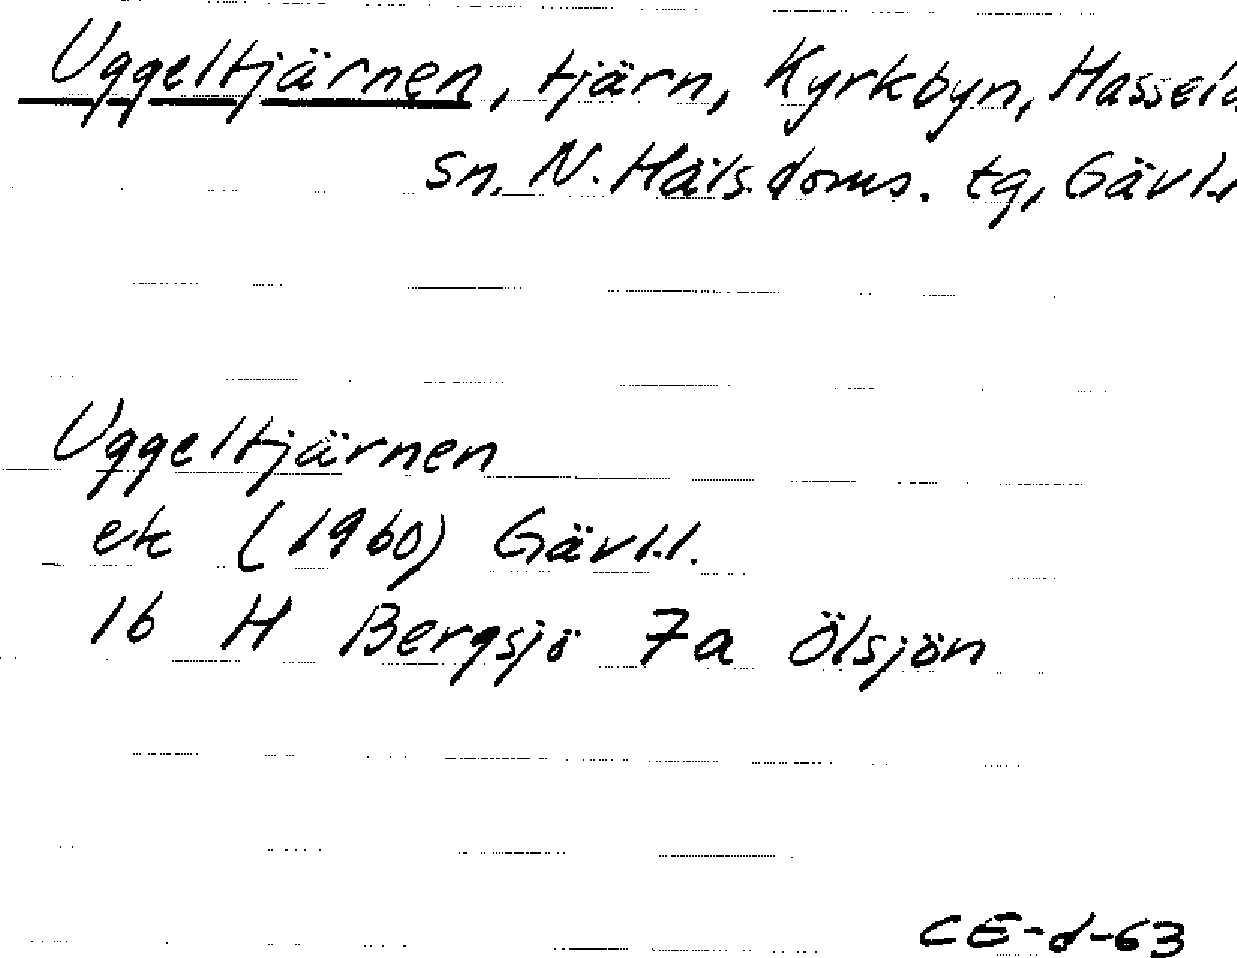 Uggeltjärnen, tjärn, Kyrkbyn, Hassela
sn. N. Häls. doms. tg, Gävl.l.
Uggeltjärnen
ek (1960) Gävl.l.
16 H Bergsjö 7a Ölsjön
CE-d-63